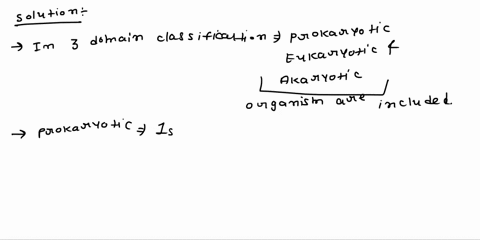 Solution:-
→ In 3 domain classification ⇒ prokaryotic
Eukaryotic &
Akaryotic
organism are included
→ prokaryotic ⇒ Is